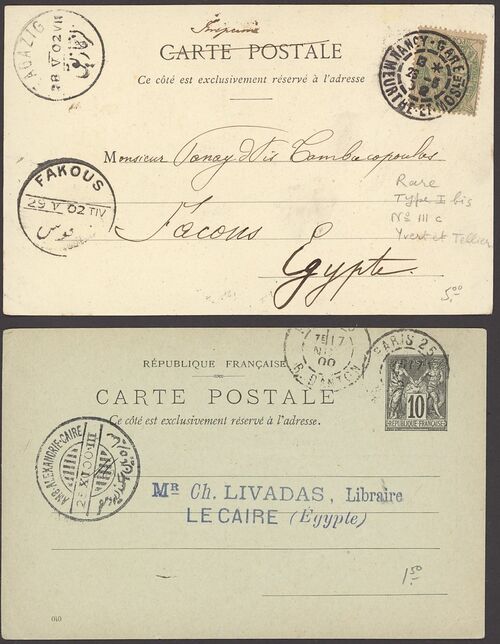 Imprimé
CARTE POSTALE
Ce côté est exclusivement réservé à l'adresse
ZAGAZIG
28 V 02 VII
الزقازيق
NANCY-GARE
MEURTHE-ET-MOSELLE
Monsieur Panayotis Tambacopoulos
FAKOUS
29 V 02 TIV
فاقوس
Rare
Type I bis
No III c
Yvert et Tellier
Facous
Egypte.
5.00
RÉPUBLIQUE FRANÇAISE
CARTE POSTALE
Ce côté est exclusivement réservé à l'adresse.
17
00
B. DANTON
PARIS 25
10
REPUBLIQUE FRANÇAISE
AMB. ALEXANDRIE-CAIRE
MR Ch. LIVADAS, Libraire
LE CAIRE (Égypte)
1.50
040